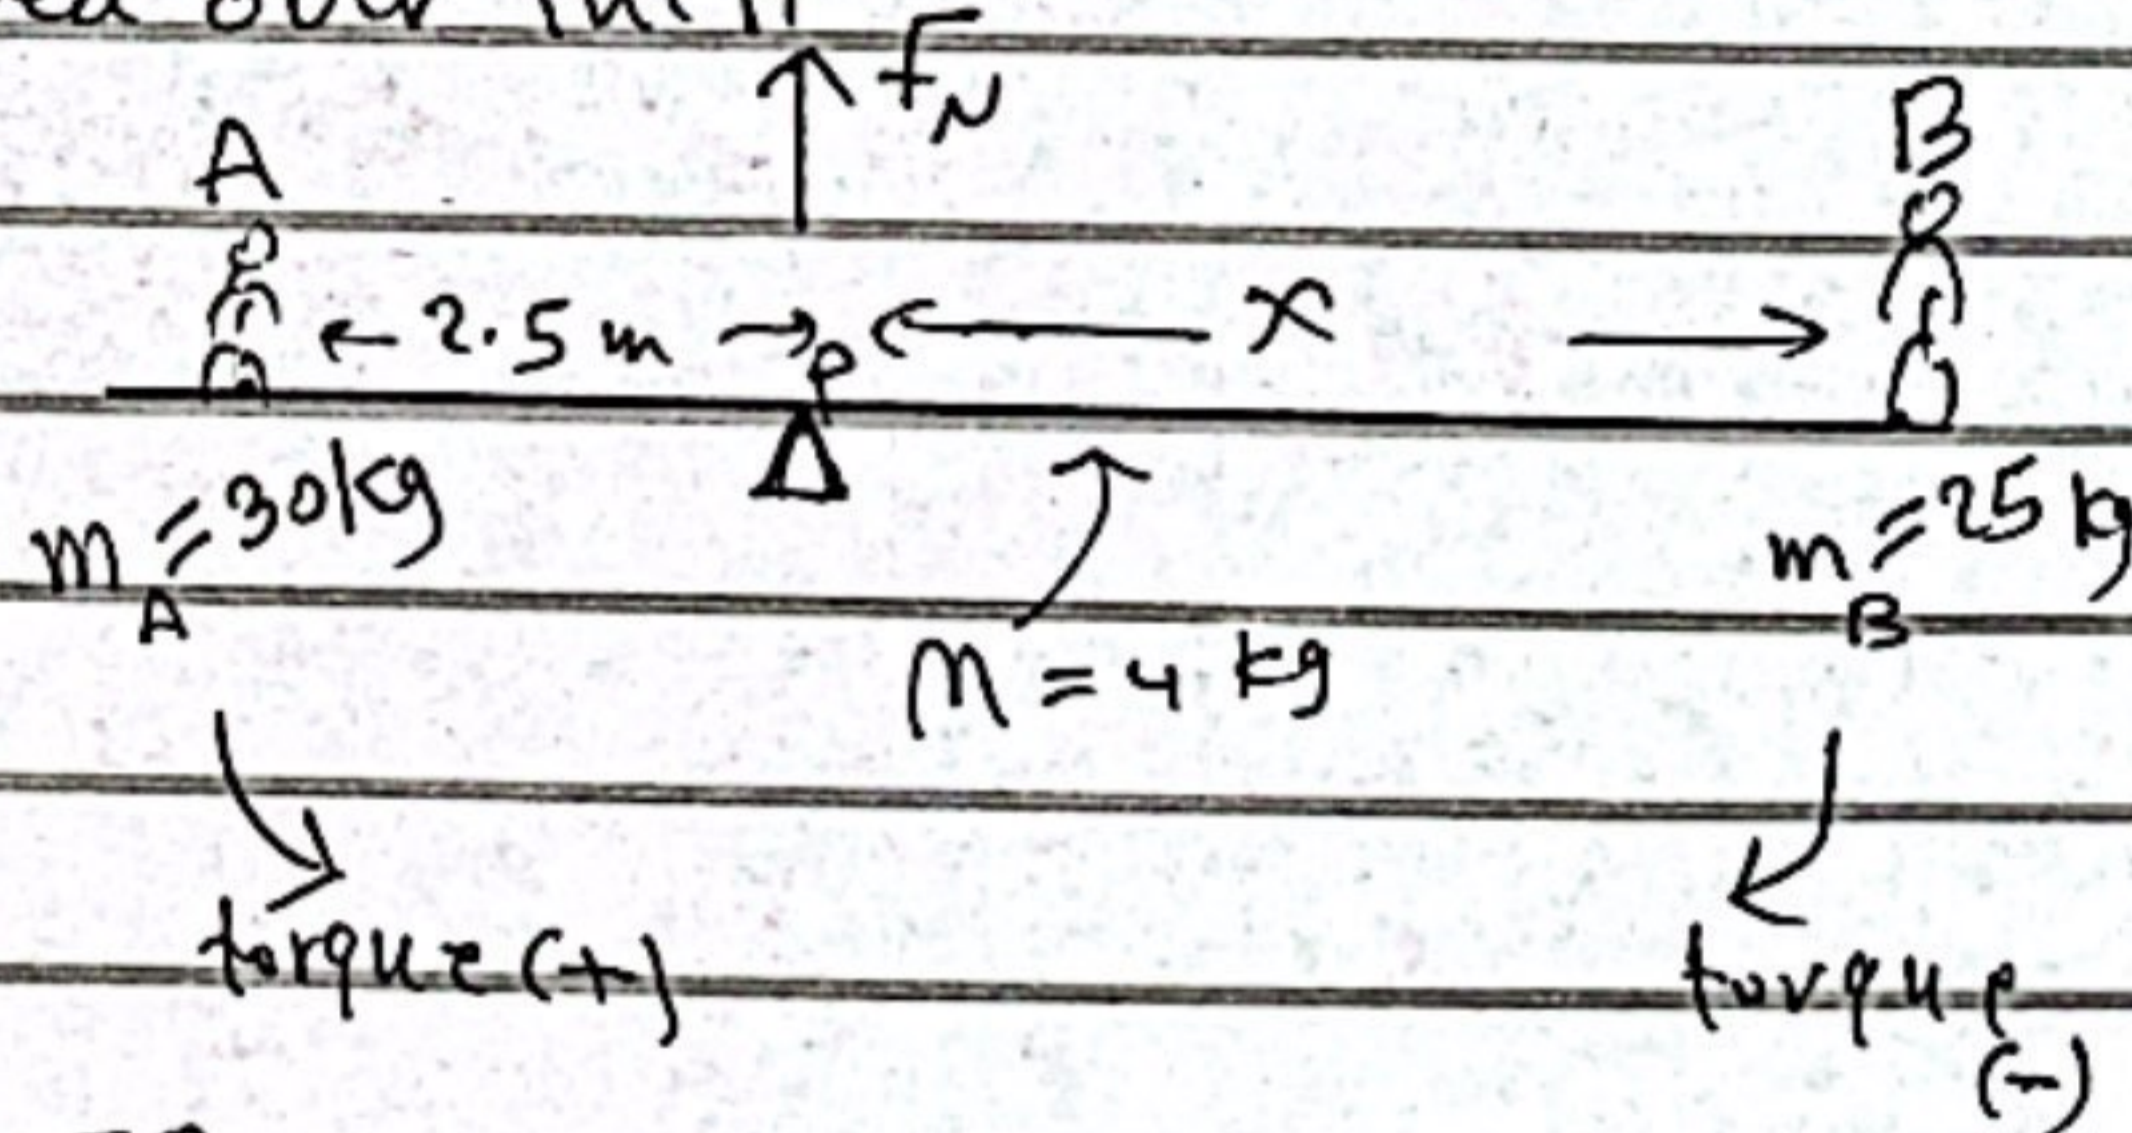 F_N
A
B
← 2.5 m → P ← x →
m_A = 30kg
m_B = 25 kg
M = 4 kg
torque (+)
torque
(-)